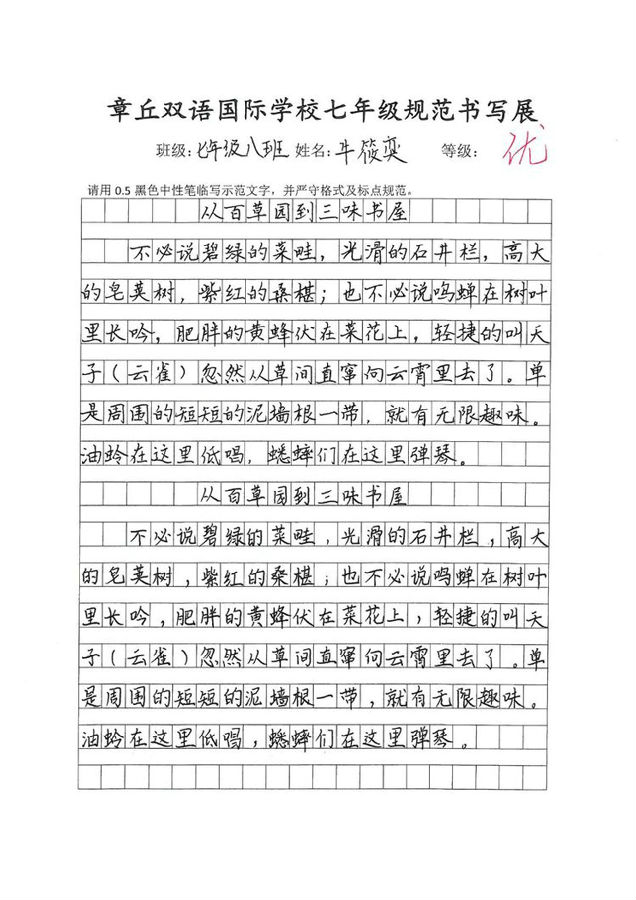 章丘双语国际学校七年级规范书写展
班级:七年级八班 姓名:牛筱奕 等级: 优
请用 0.5 黑色中性笔临写示范文字，并严守格式及标点规范。
从百草园到三味书屋
不必说碧绿的菜畦，光滑的石井栏，高大
的皂荚树，紫红的桑椹；也不必说鸣蝉在树叶
里长吟，肥胖的黄蜂伏在菜花上，轻捷的叫天
子（云雀）忽然从草间直窜向云霄里去了。单
是周围的短短的泥墙根一带，就有无限趣味。
油蛉在这里低唱，蟋蟀们在这里弹琴。
从百草园到三味书屋
不必说碧绿的菜畦，光滑的石井栏，高大
的皂荚树，紫红的桑椹；也不必说鸣蝉在树叶
里长吟，肥胖的黄蜂伏在菜花上，轻捷的叫天
子（云雀）忽然从草间直窜向云霄里去了。单
是周围的短短的泥墙根一带，就有无限趣味。
油蛉在这里低唱，蟋蟀们在这里弹琴。